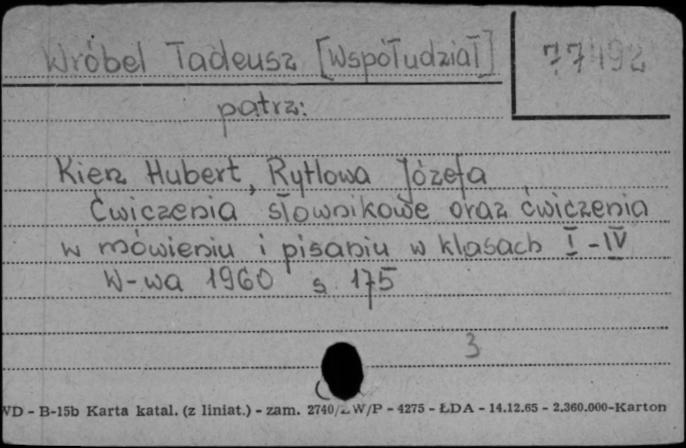 Wróbel Tadeusz [Współudział]
77492
patrz:
Kierz Hubert, Rytlowa Józefa
Ćwiczenia słownikowe oraz ćwiczenia
w mówieniu i pisaniu w klasach I-IV
W-wa 1960 s 175
3
WD - B-15b Karta katal. (z liniat.) - zam. 2740/2 W/P - 4275 - ŁDA - 14.12.65 - 2.360.000-Karton